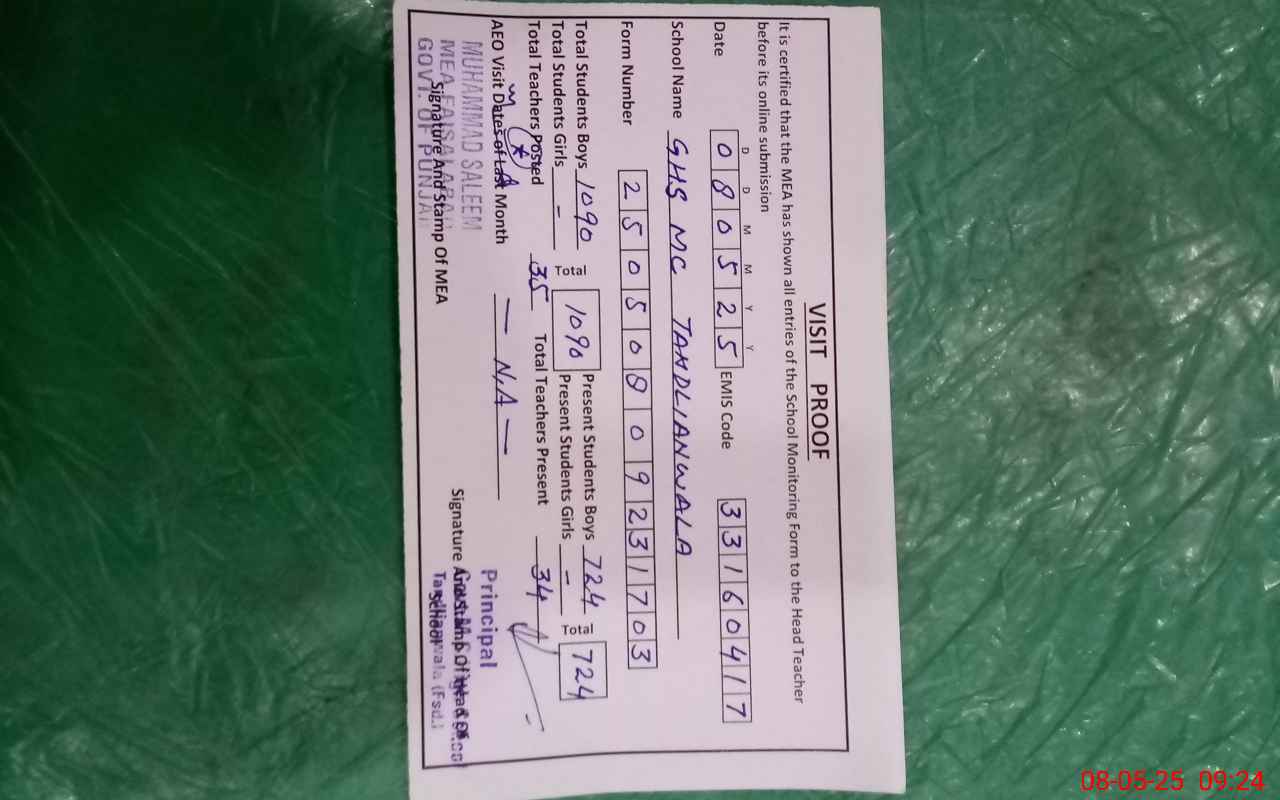 VISIT PROOF
It is certified that the MEA has shown all entries of the School Monitoring Form to the Head Teacher
before its online submission
D D M M Y Y
Date 0 8 0 5 2 5 EMIS Code 3 3 1 6 0 4 1 7
School Name GHS MC TANDLIANWALA
Form Number 2 5 0 5 0 8 0 9 2 3 1 7 0 3
Total Students Boys 1090 Total 1090 Present Students Boys 724 Total 724
Total Students Girls - Present Students Girls -
Total Teachers Posted 35 Total Teachers Present 34
AEO Visit Dates of Last Month — N,A —
MUHAMMAD SALEEM
MEA FAISALABAD
GOVT. OF PUNJAB
Signature And Stamp Of MEA
Principal
Signature And Stamp Of Head Of
School
Tandlianwala (Fsd.)
08-05-25 09:24